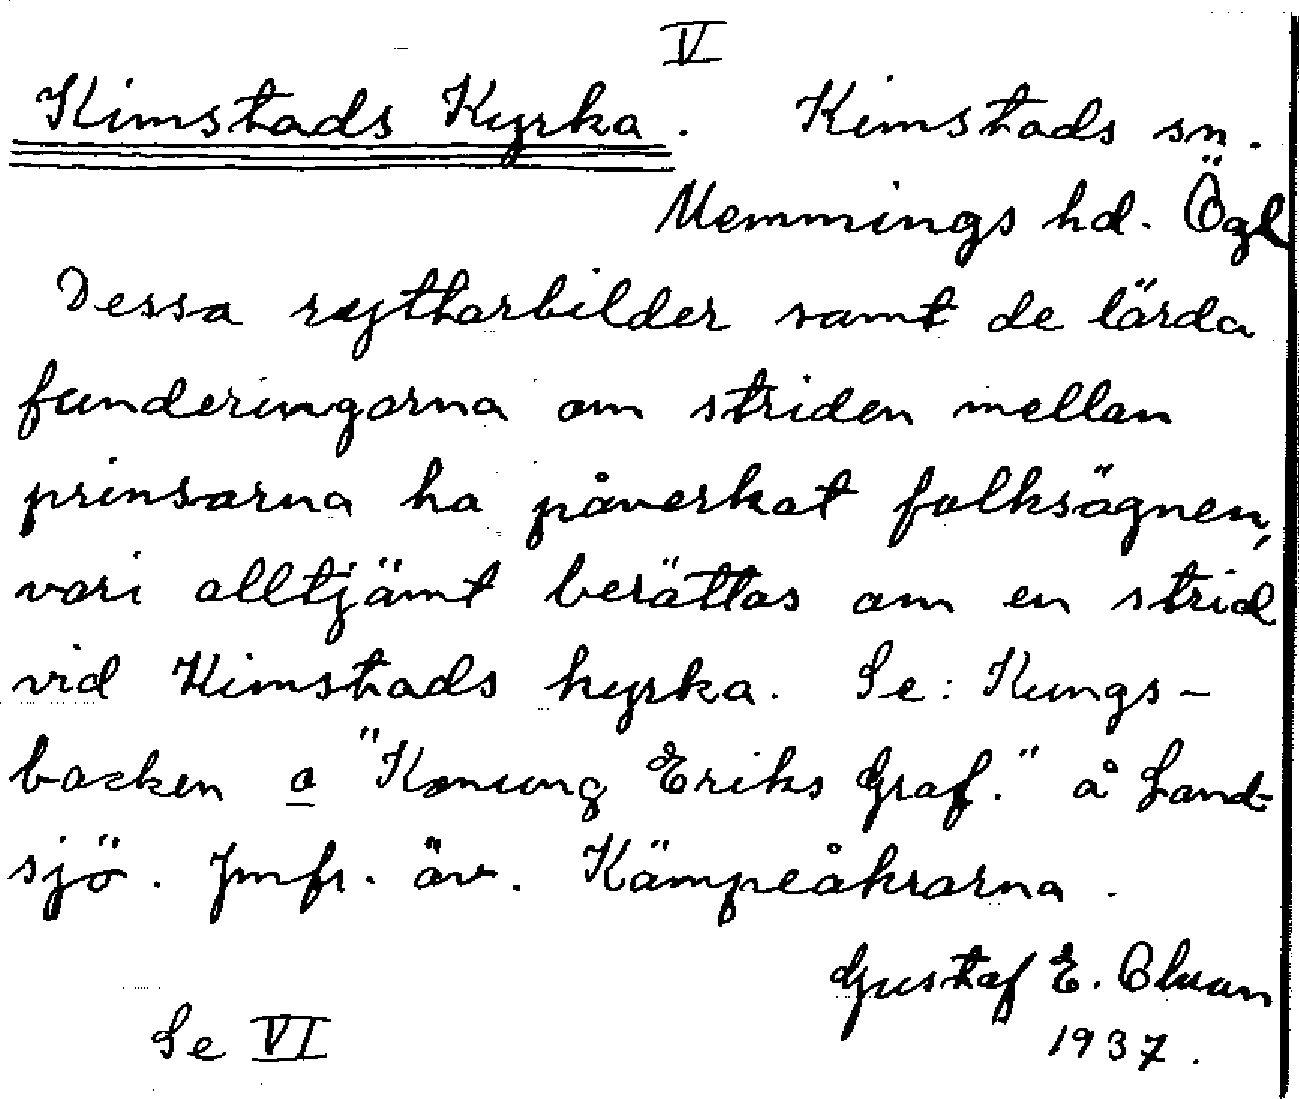 V
Kimstads Kyrka. Kimstads sn.
Memmings hd. Ögl
Dessa ryttarbilder samt de lärda
funderingarna om striden mellan
prinsarna ha påverkat folksägnen,
vari alltjämt berättas om en strid
vid Kimstads kyrka. Se: Kungs-
backen o "Konung Eriks Graf." å Land-
sjö. Jmfr. äv. Kämpeåkrarna.
Gustaf E. Olsson
Se VI 1937.